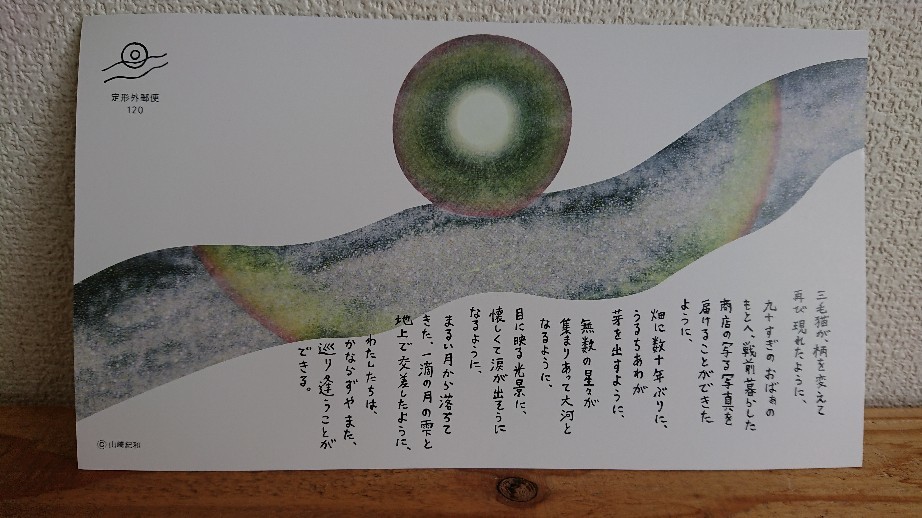 定形外郵便
120
三毛猫が、柄を変えて
再び現れたように、
九十すぎのおばぁの
もとへ、戦前暮らした
商店の写る写真を
届けることができた
ように、
畑に数十年ぶりに、
うるちあわが
芽を出すように、
無数の星々が
集まりあって大河と
なるように、
目に映る光景に、
懐しくて涙が出そうに
なるように、
まるい月から落ちて
きた、一滴の月の雫と
地上で交差したように、
わたしたちは、
かならずやまた、
巡り逢うことが
できる。
©山崎紀和